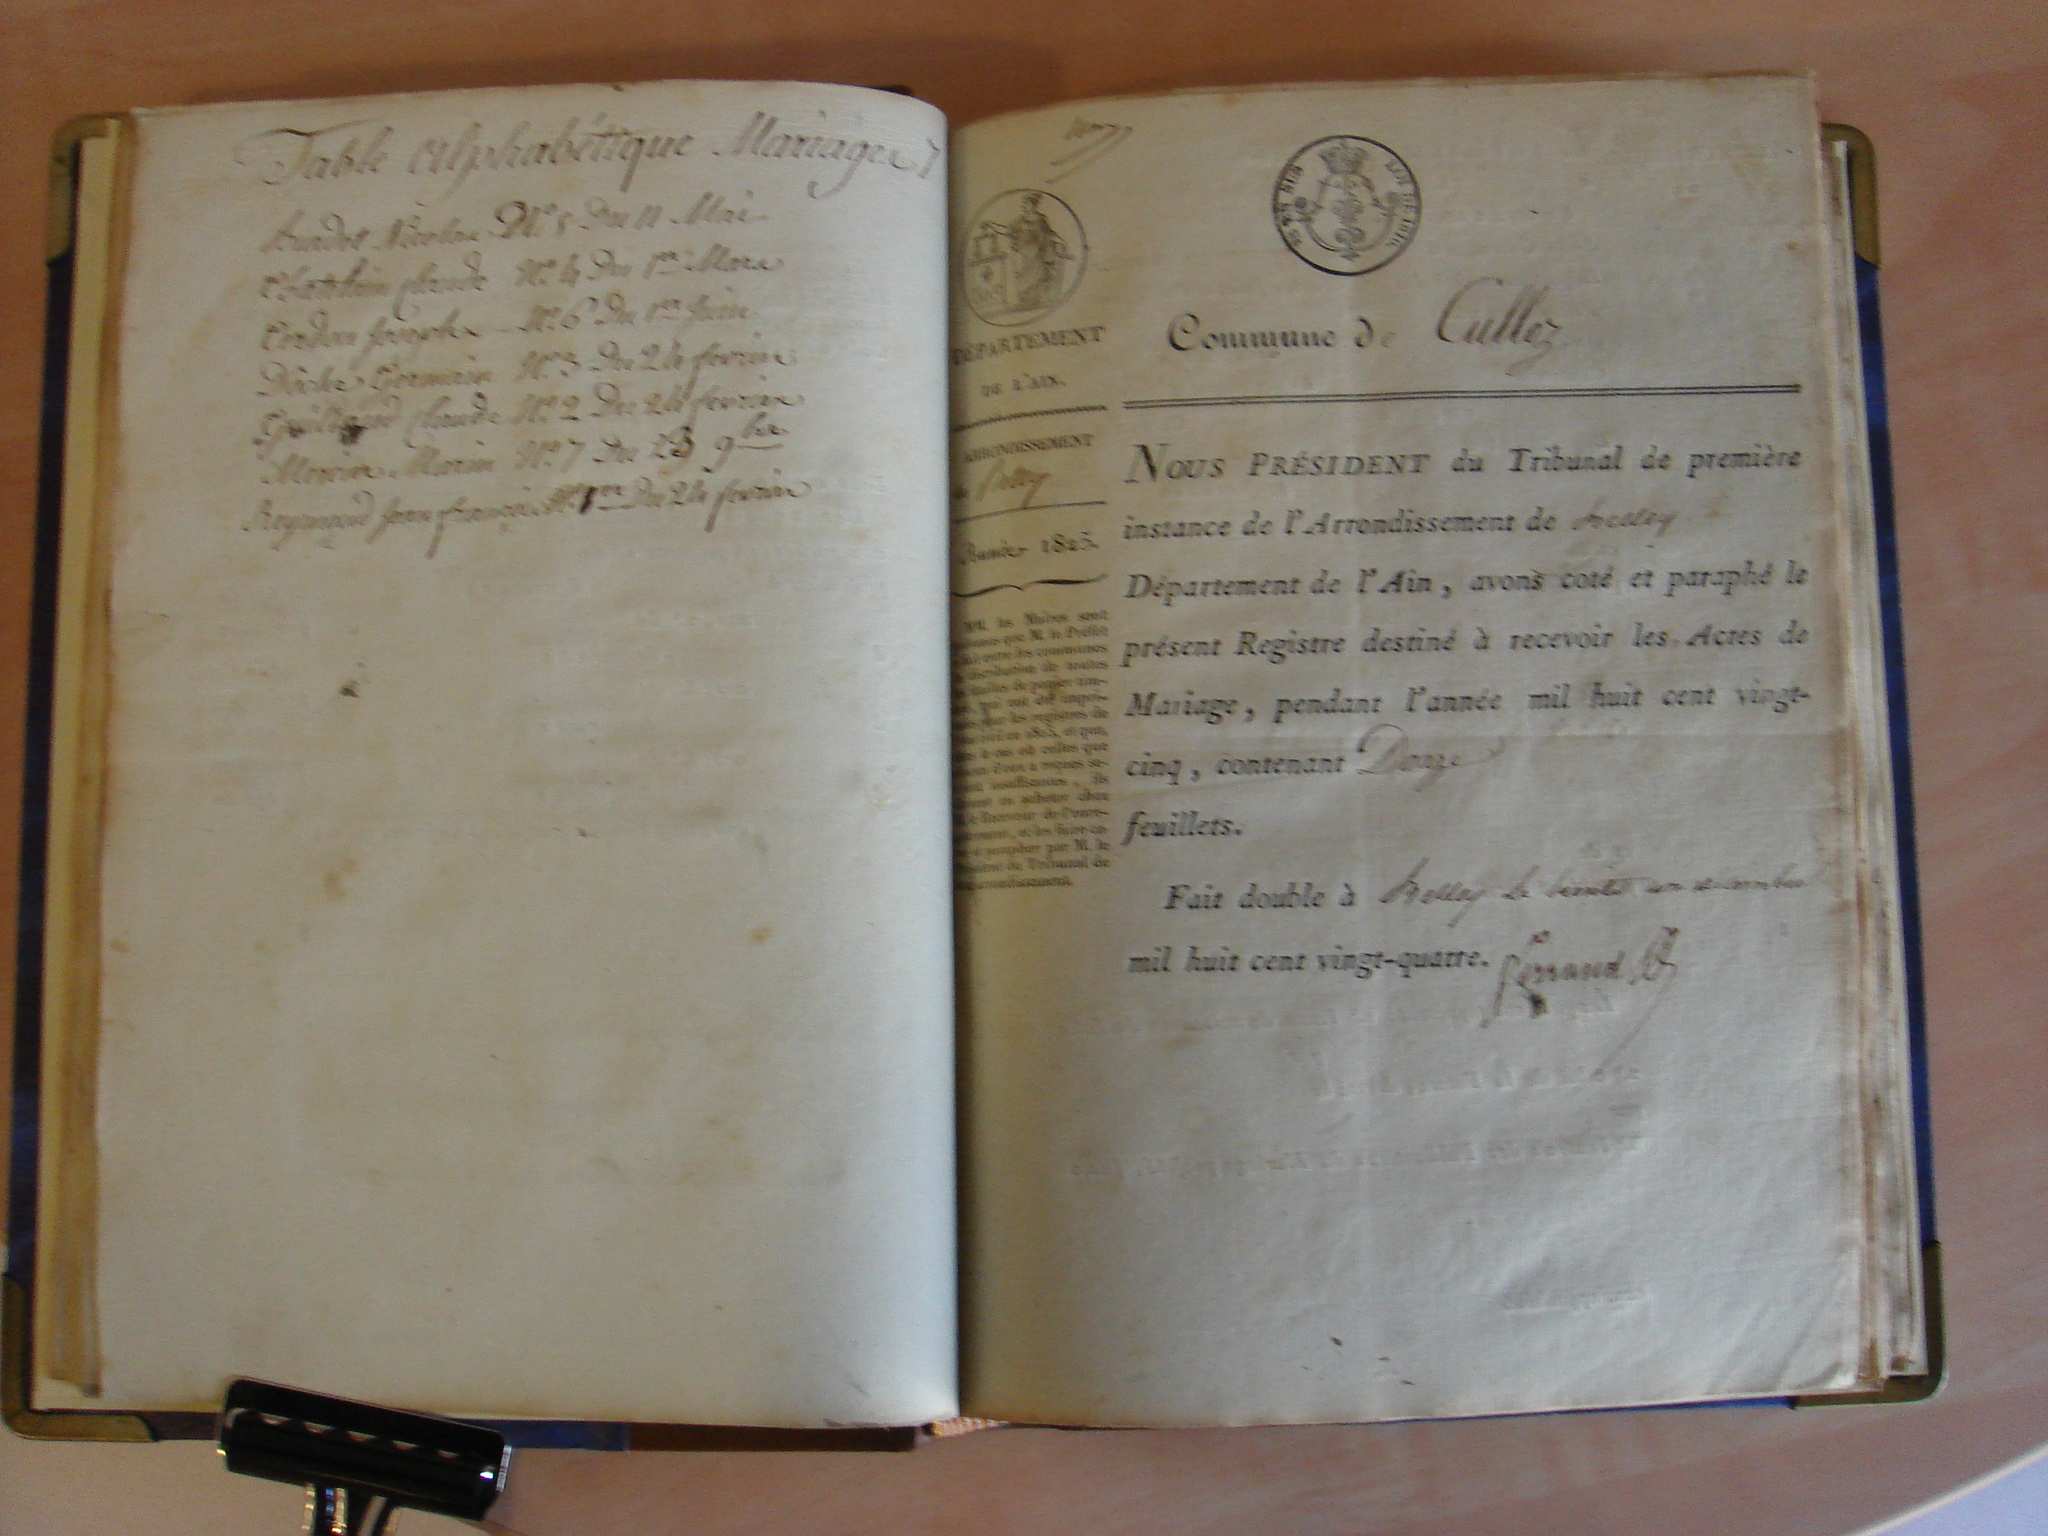 Table Alphabétique Mariages 7
Nicolas N.° 5 Du 11 Mai
Chatelain Claude N.° 4 Du 1er Mars
Cerdon Joseph N.° 6 Du 1er Juin
Germain N.° 3 Du 24 fevrier
Claude N.° 2 Du 24 fevrier
Marin N.° 7 Du 23 9bre
Reymond Jean françois N.° 1er Du 24 fevrier
LOI DE 1816
DÉPARTEMENT
DE L'AIN.
ARRONDISSEMENT
de Belley
1825.
les Maires sont
que M. le Préfet
entre les communes
distribution de toutes
feuilles de papier tim-
qui ont été
pour les registres de
1825, et que,
le cas où celles que
insuffisantes, ils
en acheter chez
le Receveur de l'enre-
et les faire co-
et parapher par M. le
du Tribunal de
arrondissement.
Commune de Culloz
NOUS PRÉSIDENT du Tribunal de première
instance de l'Arrondissement de Belley
Département de l'Ain, avons coté et paraphé le
présent Registre destiné à recevoir les Actes de
Mariage, pendant l'année mil huit cent vingt-
cinq, contenant Douze
feuillets.
Fait double à Belley le
mil huit cent vingt-quatre.